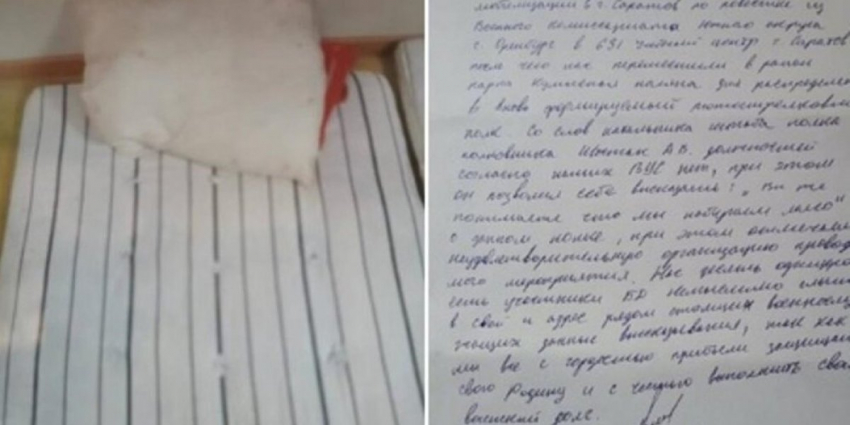 мобилизации в г. Саратов по повестке из
Военного Комиссариата южного округа
г. Оренбург в 631 учебный центр г. Саратов
после чего нас переместили в район
парка для распределе
в вновь формируемый мотострелковый
полк. Со слов начальника штаба полка
полковника А.В. должностей
согласно наших ВУС нет, при этом
он позволил себе высказывание: „Вы же
понимаете что мы набираем мясо"
в данном полке, при этом
неудовлетворительную организацию провод
мого мероприятия. Нас десять
есть участники БД
в свой адрес рядом стоящих
данные высказывания, так как
мы все с гордостью прибыли защищать
свою Родину и с честью выполнить свой
воинский долг.